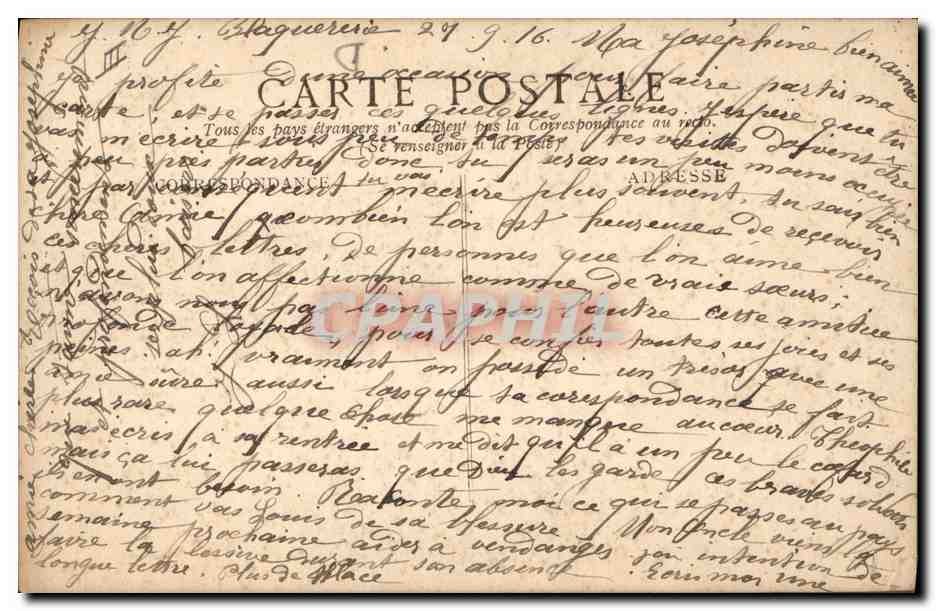 J. N. J. Blaquererie 27. 9. 16. Ma Joséphine bien aimée
J'ai profité d'une occasion pour faire partir ma
CARTE POSTALE
carte, et te passer ces quelques lignes j'espère que tu
Tous les pays étrangers n'acceptent pas la Correspondance au recto.
vas m'écrire sous peu de tes visites doivent être
(Se renseigner à la Poste)
peu près parties donc tu seras un peu moins occupée
CORRESPONDANCE
ADRESSE
et par tu vas m'écrire plus souvent, tu sais bien
chère amie combien l'on est heureuses de reçevoir
ces chères lettres, de personnes que l'on aime bien
et que l'on affectionne comme de vraie sœurs;
n'avons nous pas l'une pour l'autre cette amitié
CPAPHIL
profonde pour se confier toutes ses joies et ses
peines ah! vraiment on possède un trésor avec une
amie sûre; aussi lorsque sa corespondance se fait
plus rare quelque chose me manque au cœur. Théophile
m'as écris à sa rentrée et me dit qu'il à un peu le cafard
mais ça lui passeras que Dieu les garde ces braves soldats
en ont besoin. Raconte moi ce qui se passes au pays
comment vas Louis de sa blessure Mon oncle viens la
semaine prochaine aider à vendanger j'ai intention de
faire la lessive durant son absence Ecris moi une
longue lettre. Plus de place